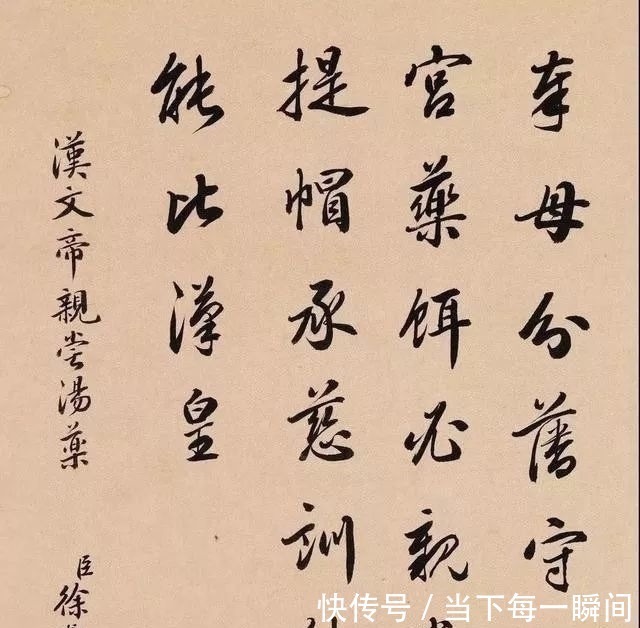 奉母分藩守
宮藥餌必親
提帽承慈訓
能比漢皇
漢文帝親嘗湯藥
臣徐
快传号 / 当下每一瞬间